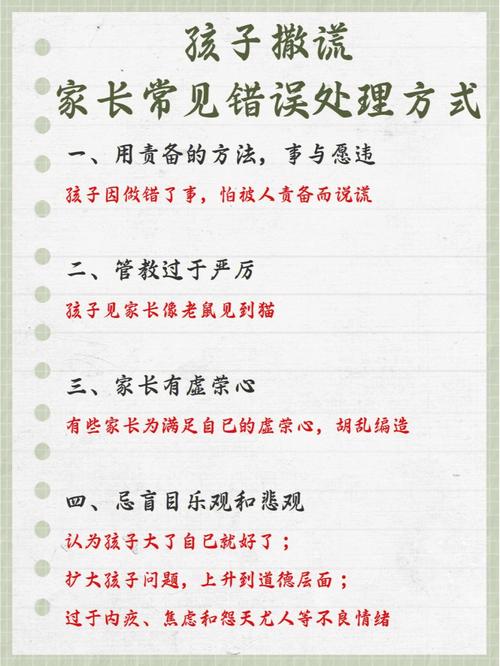 孩子撒谎
家长常见错误处理方式
一、用责备的方法，事与愿违
孩子因做错了事，怕被人责备而说谎
二、管教过于严厉
孩子见家长像老鼠见到猫
三、家长有虚荣心
有些家长为满足自已的虚荣心，胡乱编造
四、忌盲目乐观和悲观
认为孩子大了自已就好了；
扩大孩子问题，上升到道德层面；
过于内疚、焦虑和怨天尤人等不良情绪